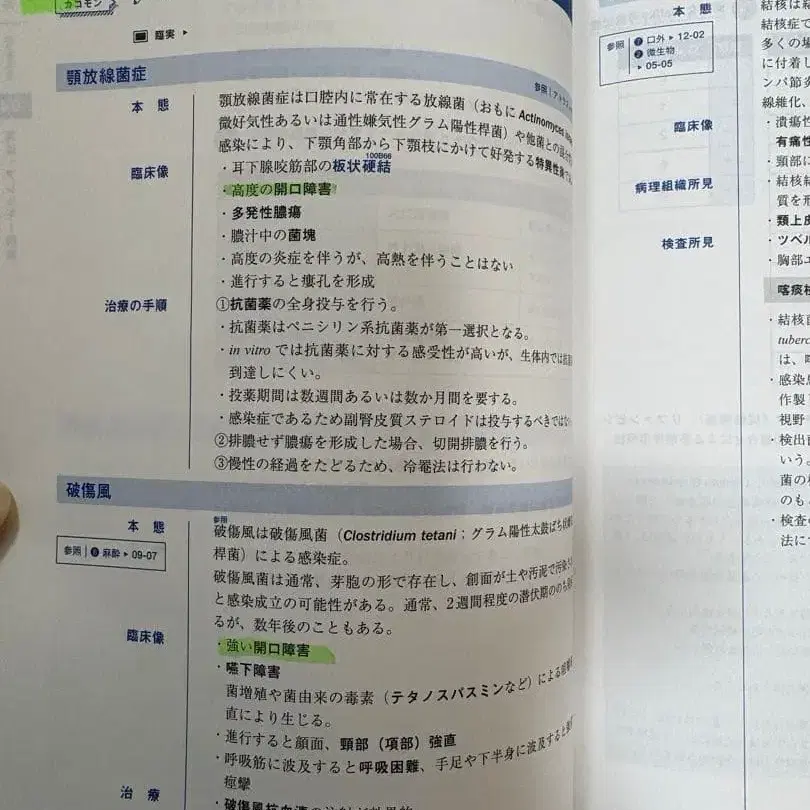 カコモン
臨実
顎放線菌症
参照
本態
顎放線菌症は口腔内に常在する放線菌(おもにActinomyces
微好気性あるいは通性嫌気性グラム陽性桿菌)や他菌との混合
感染により、下顎角部から下顎枝にかけて好発する特異性炎
臨床像
100B66
・耳下腺咬筋部の板状硬結
・高度の開口障害
・多発性膿瘍
・膿汁中の菌塊
・高度の炎症を伴うが、高熱を伴うことはない
・進行すると瘻孔を形成
治療の手順
①抗菌薬の全身投与を行う。
・抗菌薬はペニシリン系抗菌薬が第一選択となる。
・in vitroでは抗菌薬に対する感受性が高いが、生体内では
到達しにくい。
・投薬期間は数週間あるいは数か月間を要する。
・感染症であるため副腎皮質ステロイドは投与するべきでは
②排膿せず膿瘍を形成した場合、切開排膿を行う。
③慢性の経過をたどるため、冷罨法は行わない。
破傷風
本態
参照 ❻ 麻酔 ▸ 09-07
参照
破傷風は破傷風菌(Clostridium tetani;グラム陽性太鼓ばち
桿菌)による感染症。
破傷風菌は通常、芽胞の形で存在し、創面が土や汚泥で汚染
と感染成立の可能性がある。通常、2週間程度の潜伏期ののち
るが、数年後のこともある。
臨床像
・強い開口障害
・嚥下障害
菌増殖や菌由来の毒素(テタノスパスミンなど)による
直により生じる。
・進行すると顔面、頸部(項部)強直
・呼吸筋に波及すると呼吸困難、手足や下半身に波及すると
痙攣
治療
・破傷風抗血清の
本態
参照 ❼ 口外 ▸ 12-02
❷ 微生物
▸ 05-05
臨床像
病理組織所見
検査所見
結核は
結核症で
多くの場
に付着し
ンパ節炎
線維化、
・潰瘍性
有痛性
・頸部に
・結核結
質を形
・類上皮
・ツベル
・胸部エ
喀痰検
・結核菌
tuberc
は、
・感染
作製
視野
・検出
いう。
菌の
のも
・検査の
法に